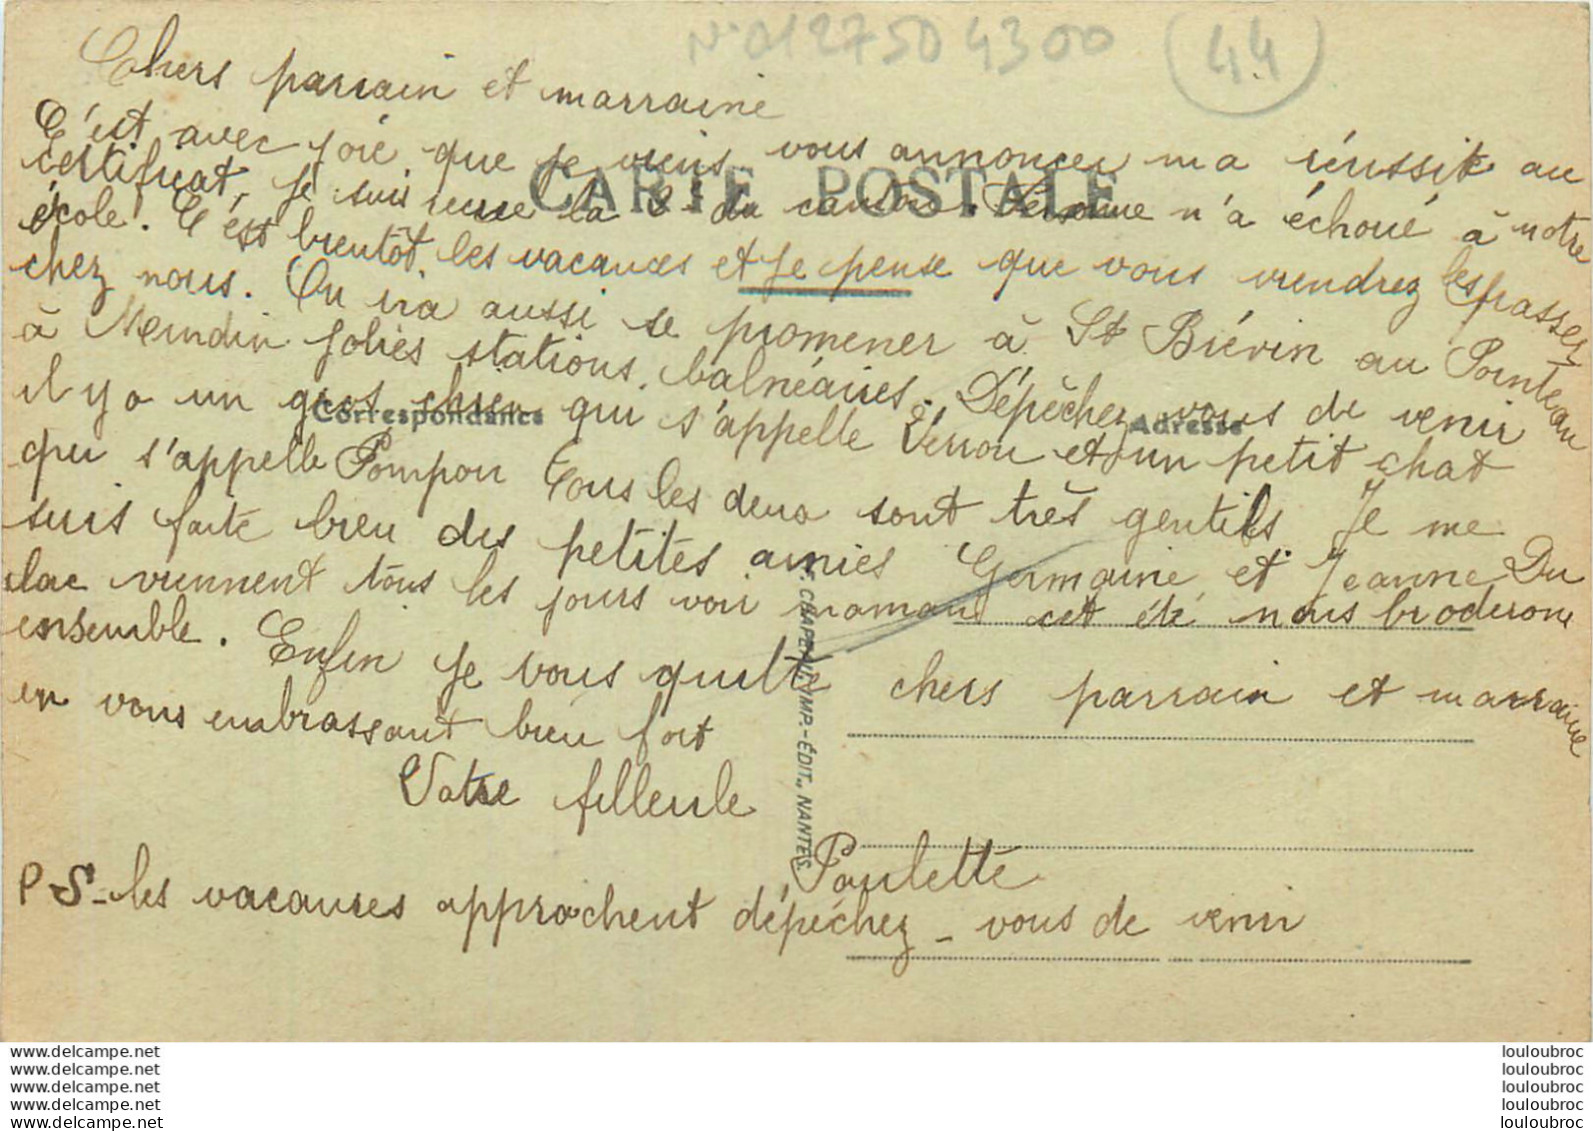 N° 012750 4300 (44)
Chers parrain et marraine
C'est avec joie que je viens vous annoncer ma réussite au
certificat, je suis reçue la 8 du canton. Personne n'a échoué à notre
école! C'est bientôt les vacances et je pense que vous viendrez les passer
chez nous. On ira aussi se promener à St Brévin au Pointeau
à Mindin jolies stations balnéaires. Dépêchez vous de venir
il y a un gros chien qui s'appelle Verrou et un petit chat
qui s'appelle Pompon Tous les deux sont très gentils Je me
suis faite bien des petites amies Germaine et Jeanne Du
lac viennent tous les jours voir maman cet été nous broderons
ensemble. Enfin je vous quitte chers parrain et marraine
en vous embrassant bien fort
Votre filleule
Paulette
PS - les vacances approchent dépêchez - vous de venir
CARTE POSTALE
Correspondance
Adresse
CHAPEAU, IMP.-ÉDIT., NANTES
www.delcampe.net
www.delcampe.net
www.delcampe.net
www.delcampe.net
www.delcampe.net
louloubroc
louloubroc
louloubroc
louloubroc
louloubroc